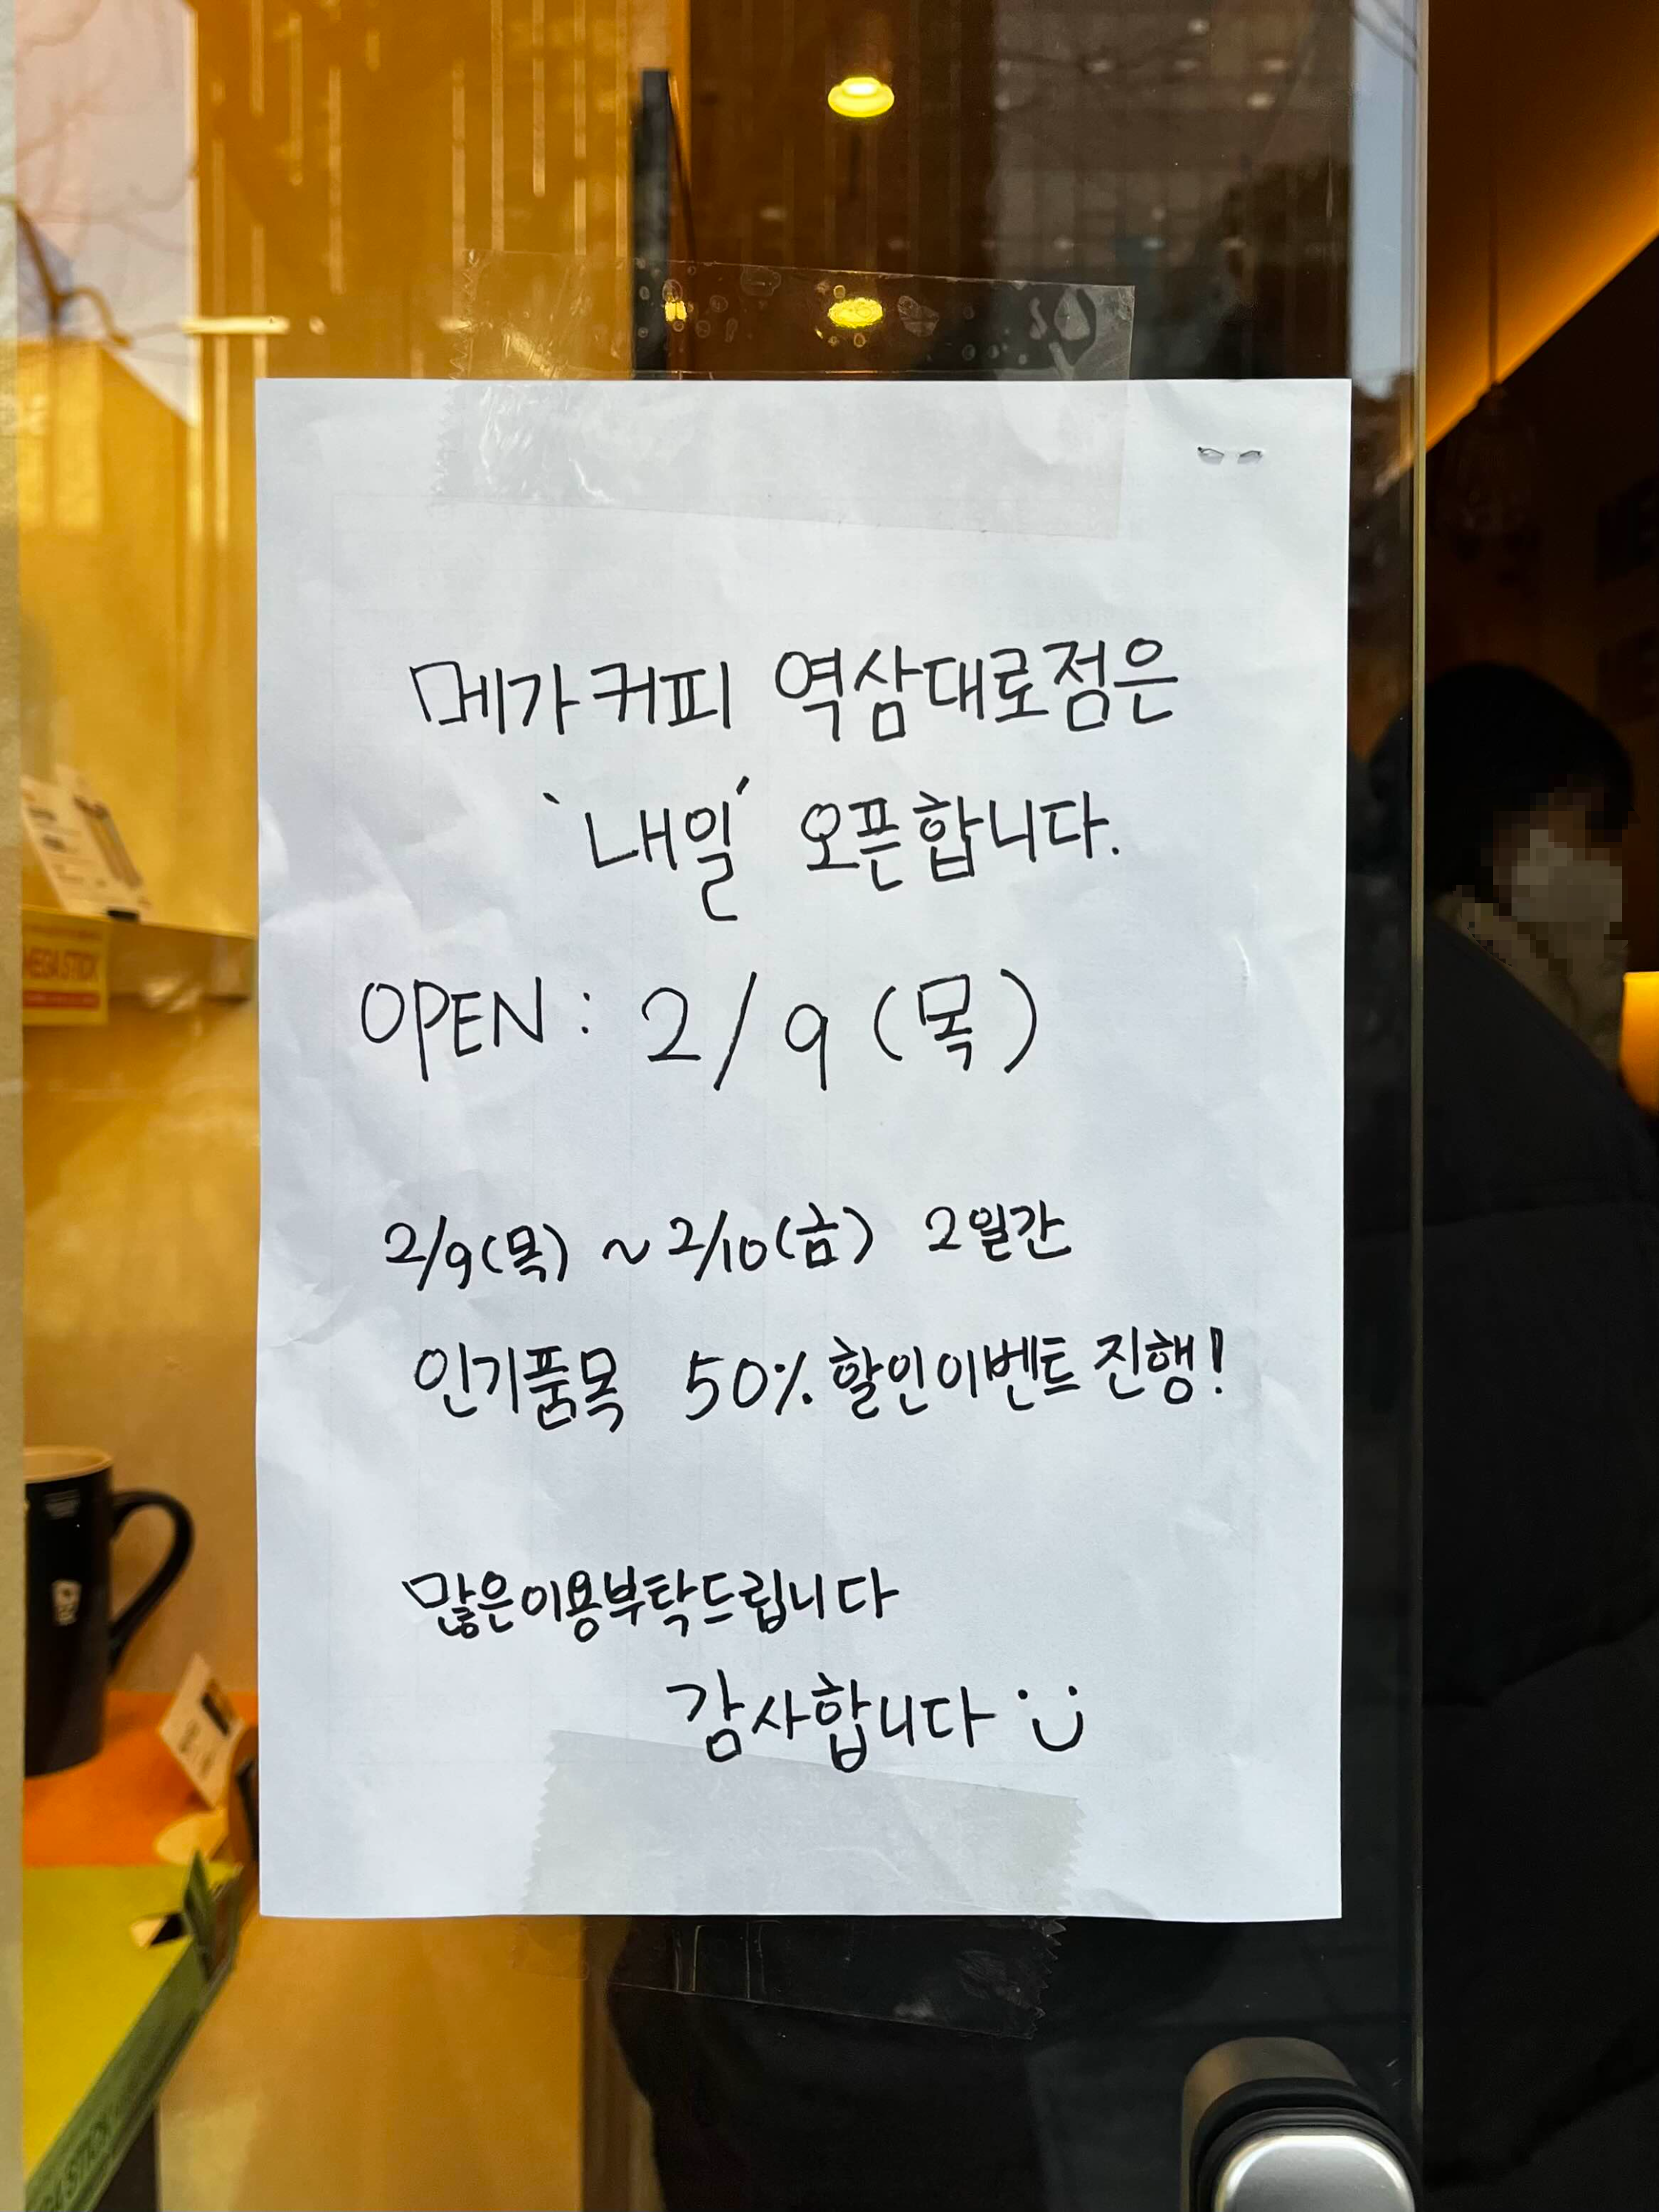 메가커피 역삼대로점은
`내일´ 오픈합니다.
OPEN : 2/9 (목)
2/9(목) ~ 2/10(금) 2일간
인기품목 50% 할인이벤트 진행!
많은이용부탁드립니다
감사합니다
MEGA STICK
STICK